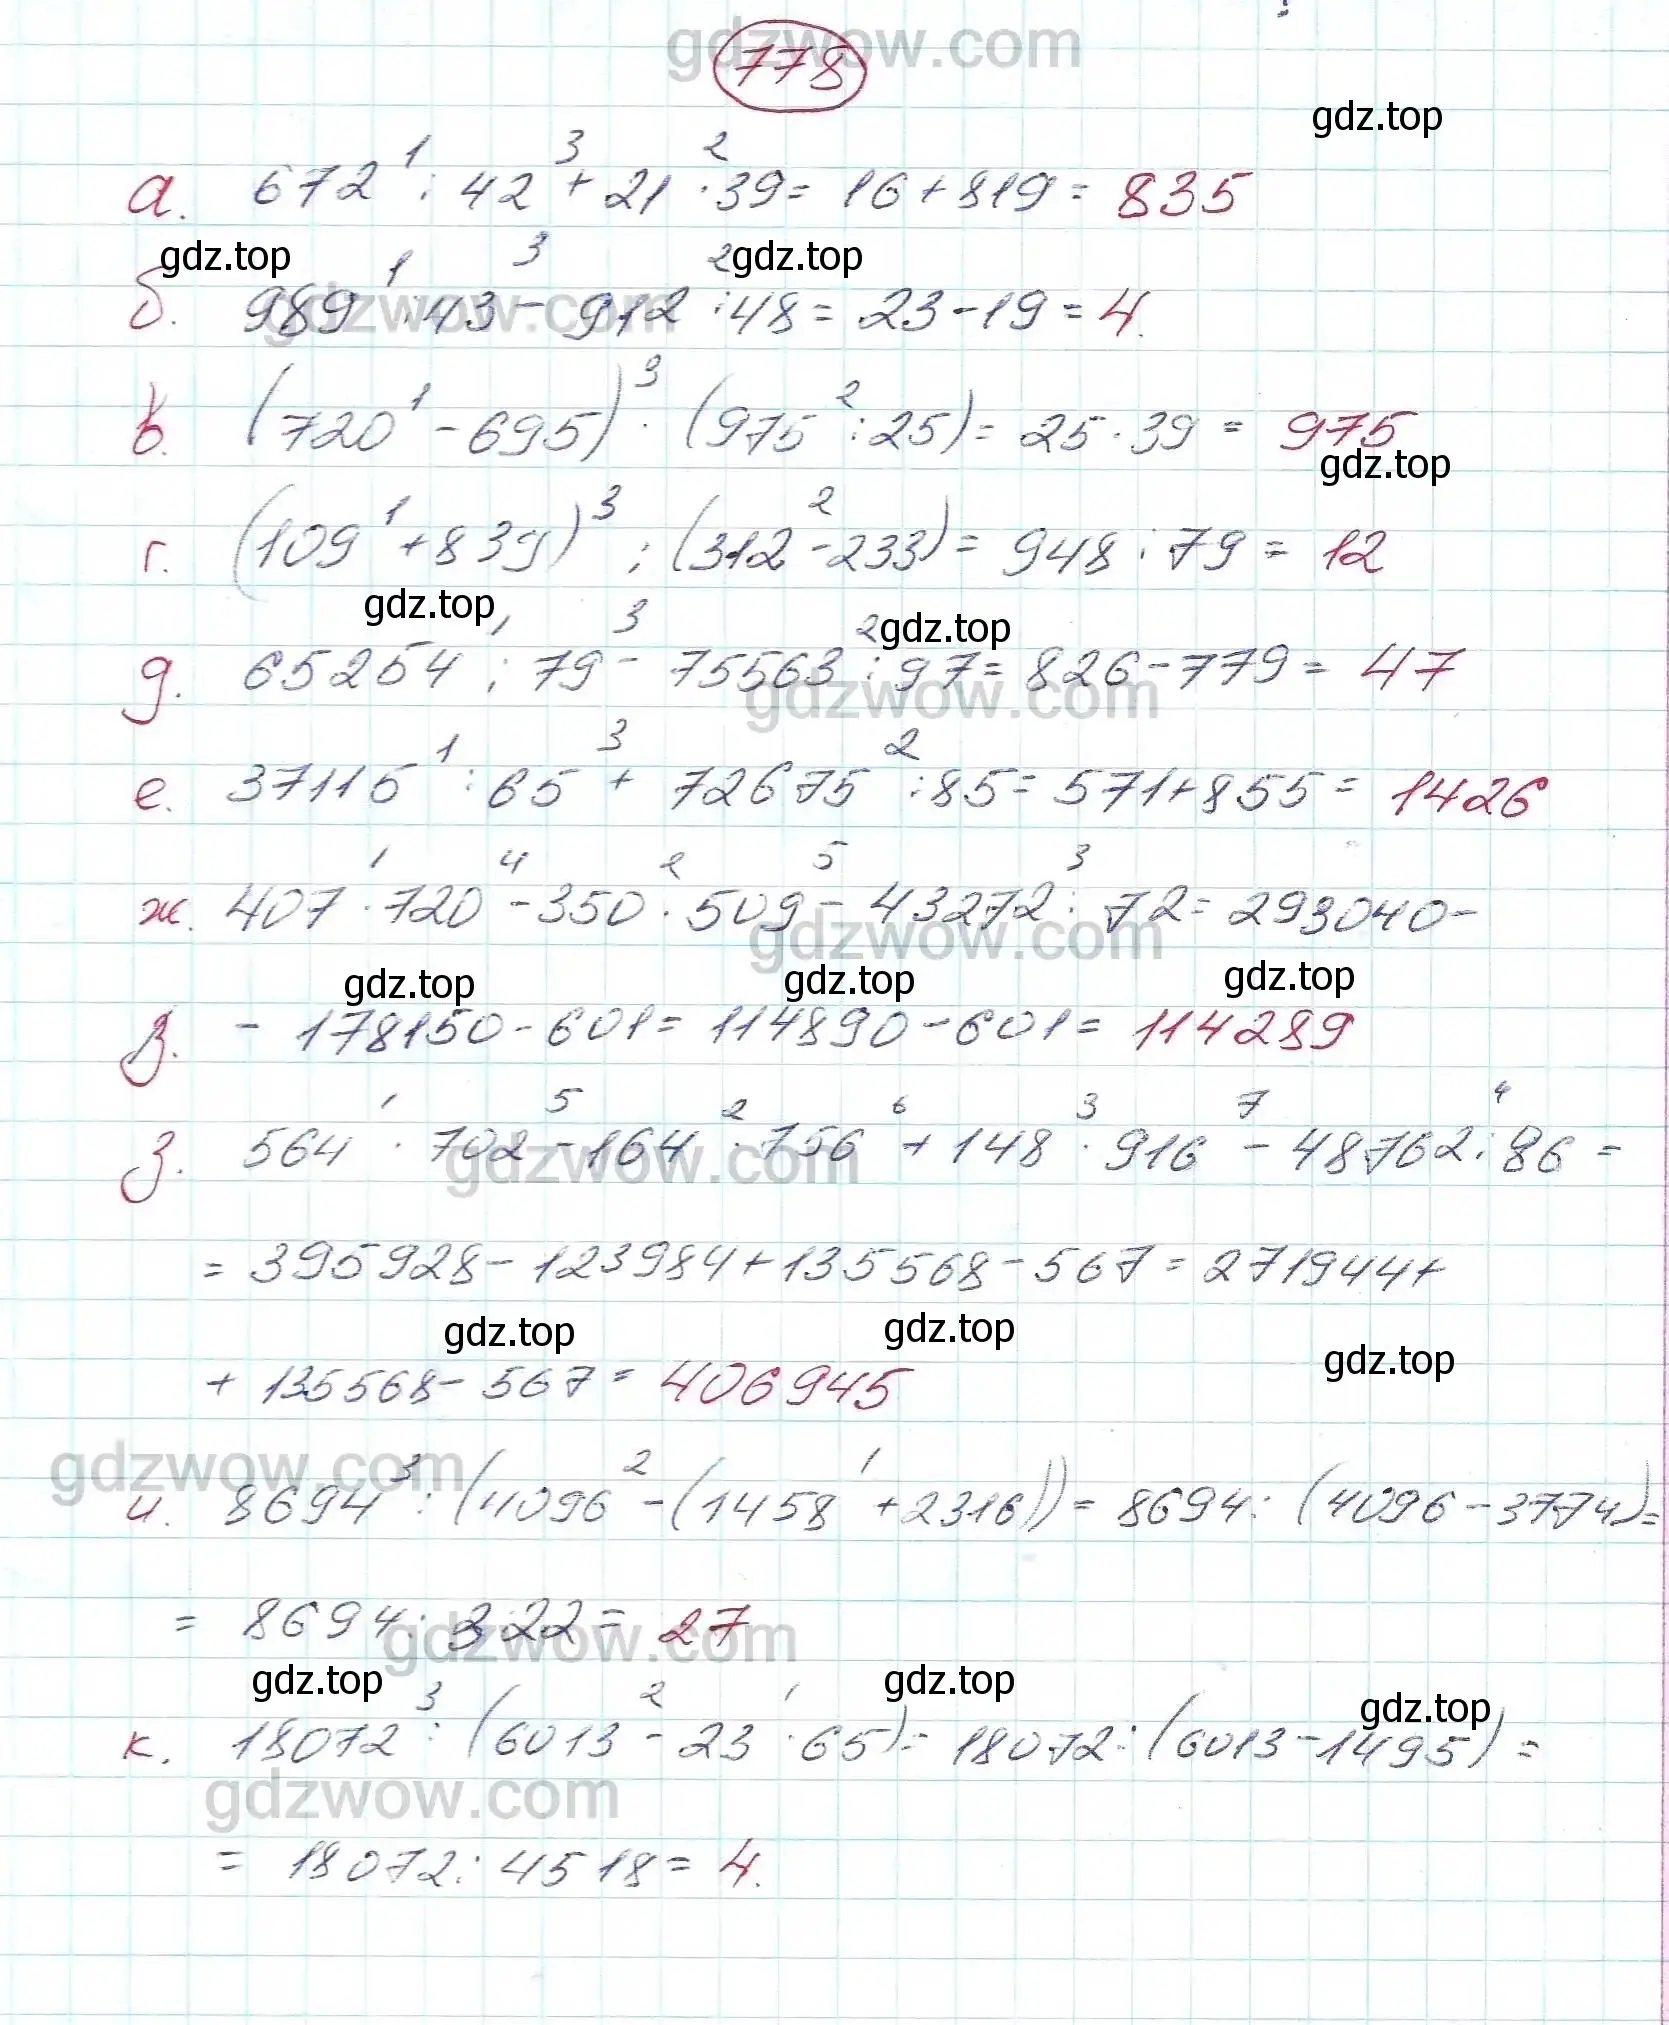 gdzwow.com
778
gdz.top
1 3 2
а. 672 : 42 + 21 · 39 = 16 + 819 = 835
gdz.top gdz.top
1 3 2
б. 989 : 43 - 912 : 48 = 23 - 19 = 4.
gdzwow.com gdzwow.com
1 3 2
в. (720 - 695) · (975 : 25) = 25 · 39 = 975
gdz.top
1 3 2
г. (109 + 839) : (312 - 233) = 948 : 79 = 12
gdz.top gdz.top
1 3 2
д. 65254 : 79 - 75563 : 97 = 826 - 779 = 47
gdzwow.com
1 3 2
е. 37115 : 65 + 72675 : 85 = 571 + 855 = 1426
1 4 2 5 3
ж. 407 · 720 - 350 · 509 - 43272 : 72 = 293040 -
gdzwow.com
gdz.top gdz.top gdz.top
з. - 178150 - 601 = 114890 - 601 = 114289
1 5 2 6 3 7 4
з. 564 · 702 - 164 · 756 + 148 · 916 - 48762 : 86 =
gdzwow.com
= 395928 - 123984 + 135568 - 567 = 271944 +
gdz.top gdz.top gdz.top
+ 135568 - 567 = 406945
gdzwow.com
3 2 1
и. 8694 : (4096 - (1458 + 2316)) = 8694 : (4096 - 3774) =
= 8694 : 322 = 27
gdzwow.com
gdz.top gdz.top gdz.top
3 2 1
к. 18072 : (6013 - 23 · 65) = 18072 : (6013 - 1495) =
gdzwow.com
= 18072 : 4518 = 4.